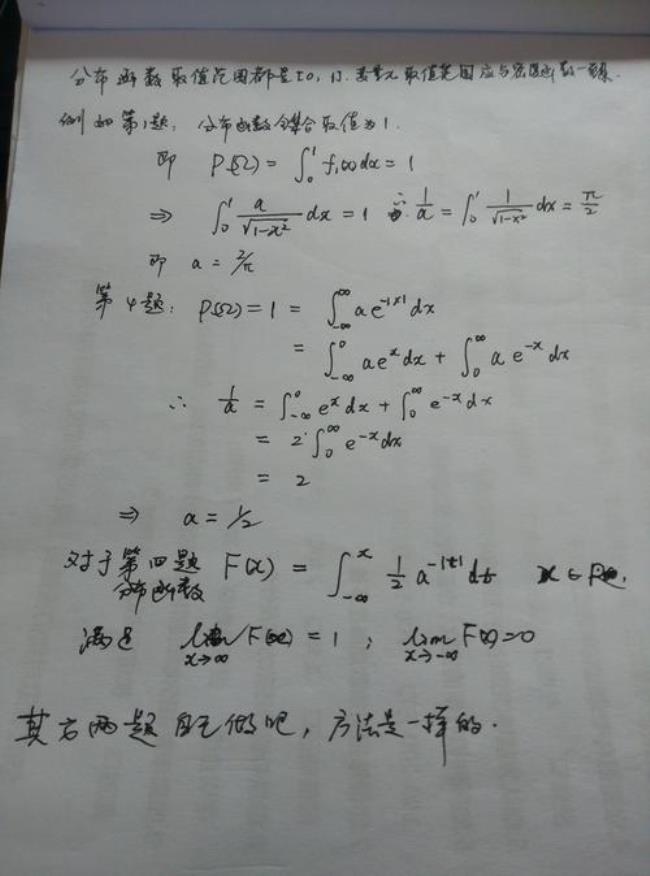 分布函数取值范围都是[0,1]. 变量x取值范围应与密度函数一致.
例如第1题, 分布函数全集合取值为1.
即 P(Ω) = ∫₀¹ f(x)dx = 1
⇒ ∫₀¹ a/√(1-x²) dx = 1 ∴ 1/a = ∫₀¹ 1/√(1-x²) dx = π/2
即 a = 2/π
第4题: P(Ω) = 1 = ∫_{-∞}^{∞} a e^{-|x|} dx
= ∫_{-∞}^{0} a e^{x} dx + ∫_{0}^{∞} a e^{-x} dx
∴ 1/a = ∫_{-∞}^{0} e^{x} dx + ∫_{0}^{∞} e^{-x} dx
= 2·∫_{0}^{∞} e^{-x} dx
= 2
⇒ a = 1/2
对于第四题 F(x) = ∫_{-∞}^{x} 1/2 a^{-|t|} dt x ∈ R.
分布函数
满足 lim_{x→∞} F(x) = 1 ; lim_{x→-∞} F(x) = 0
其它两题自己做吧, 方法是一样的.